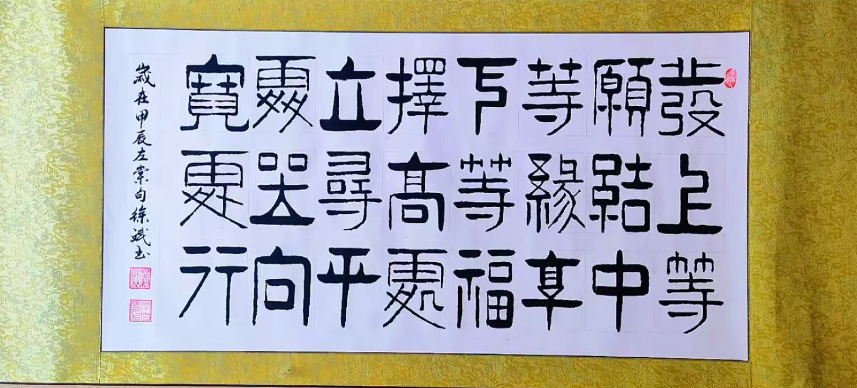 發上等
願結中
等緣享
下等福
擇高處
立尋平
處坐向
寬處行
歲在甲辰左棠句徐斌书